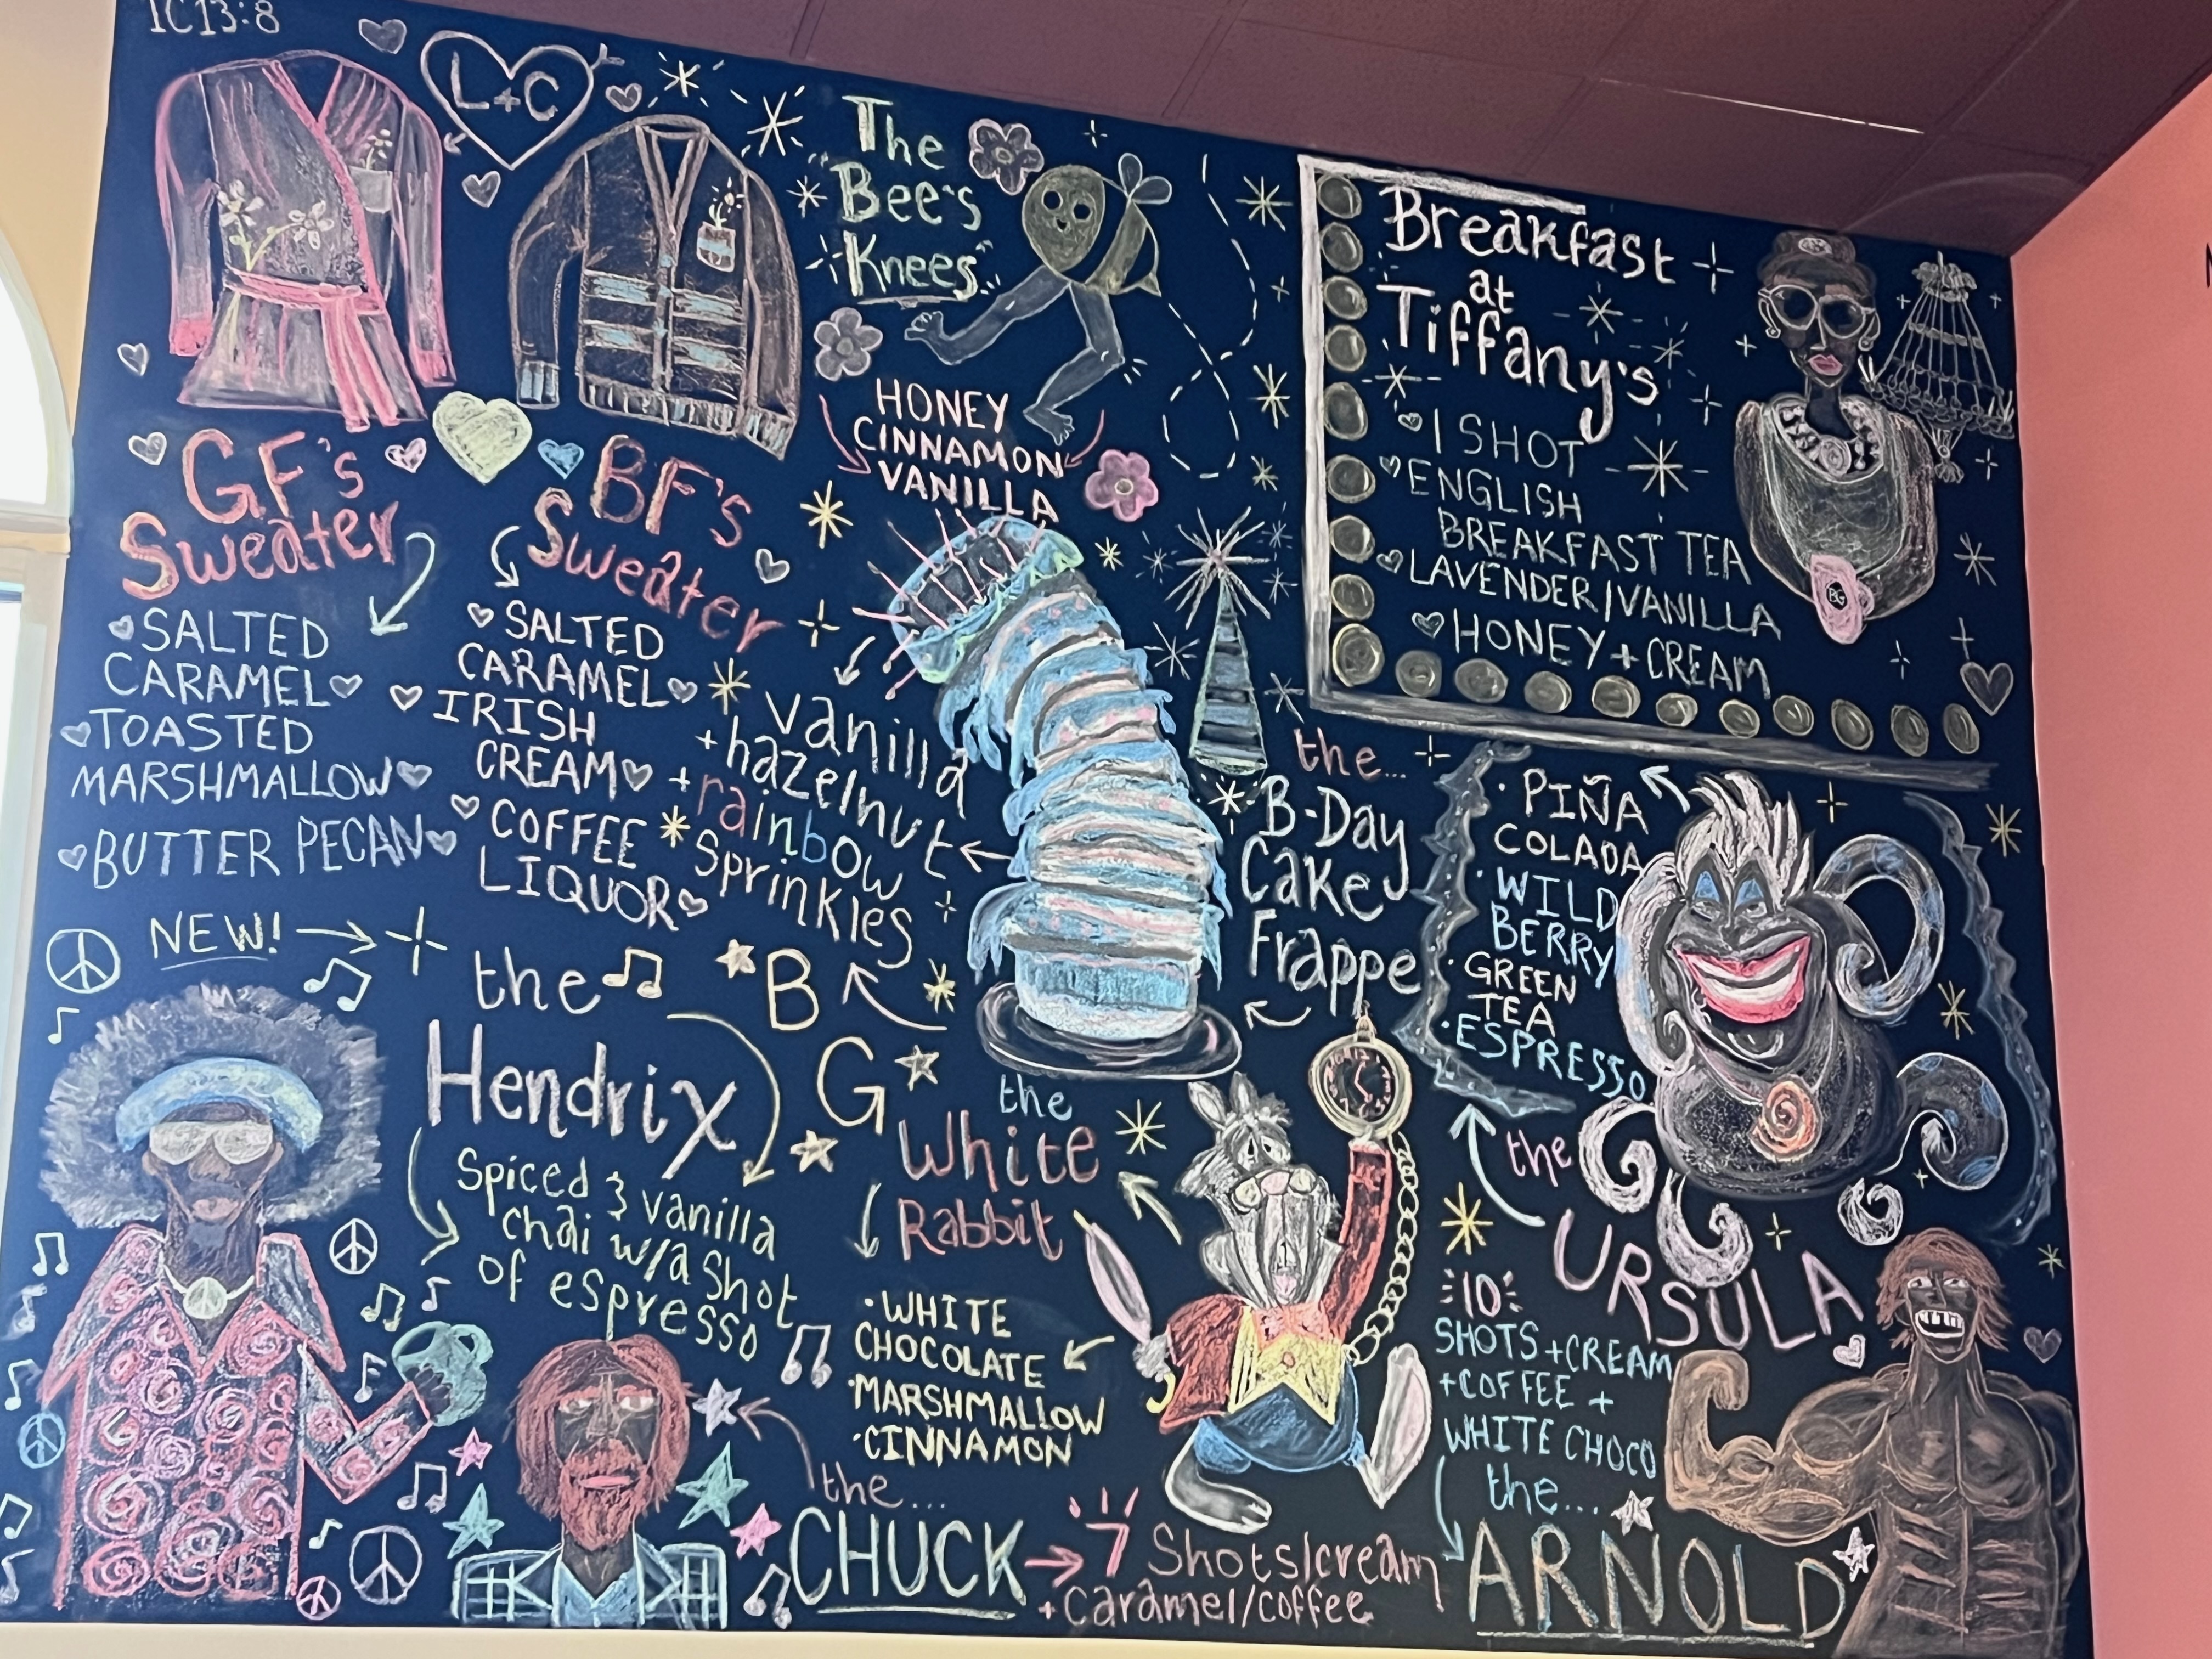 1C13:8
L+C
GF's
Sweater
SALTED
CARAMEL
TOASTED
MARSHMALLOW
BUTTER PECAN
BF's
Sweater
SALTED
CARAMEL
IRISH
CREAM
COFFEE
LIQUOR
The
"Bee's
Knees"
HONEY
CINNAMON
VANILLA
Breakfast
at
Tiffany's
1 SHOT
ENGLISH
BREAKFAST TEA
LAVENDER/VANILLA
HONEY + CREAM
BG
vanilla
+hazelnut
+rainbow
sprinkles
the...
B-Day
Cake
Frappe
• PIÑA
COLADA
• WILD
BERRY
• GREEN
TEA
• ESPRESSO
the
URSULA
NEW!
the
Hendrix
Spiced & vanilla
chai w/a shot
of espresso
B
G
the
White
Rabbit
• WHITE
CHOCOLATE
• MARSHMALLOW
• CINNAMON
10
SHOTS + CREAM
+ COFFEE +
WHITE CHOCO
the...
ARNOLD
the...
CHUCK
7 Shots/cream
+ caramel/coffee